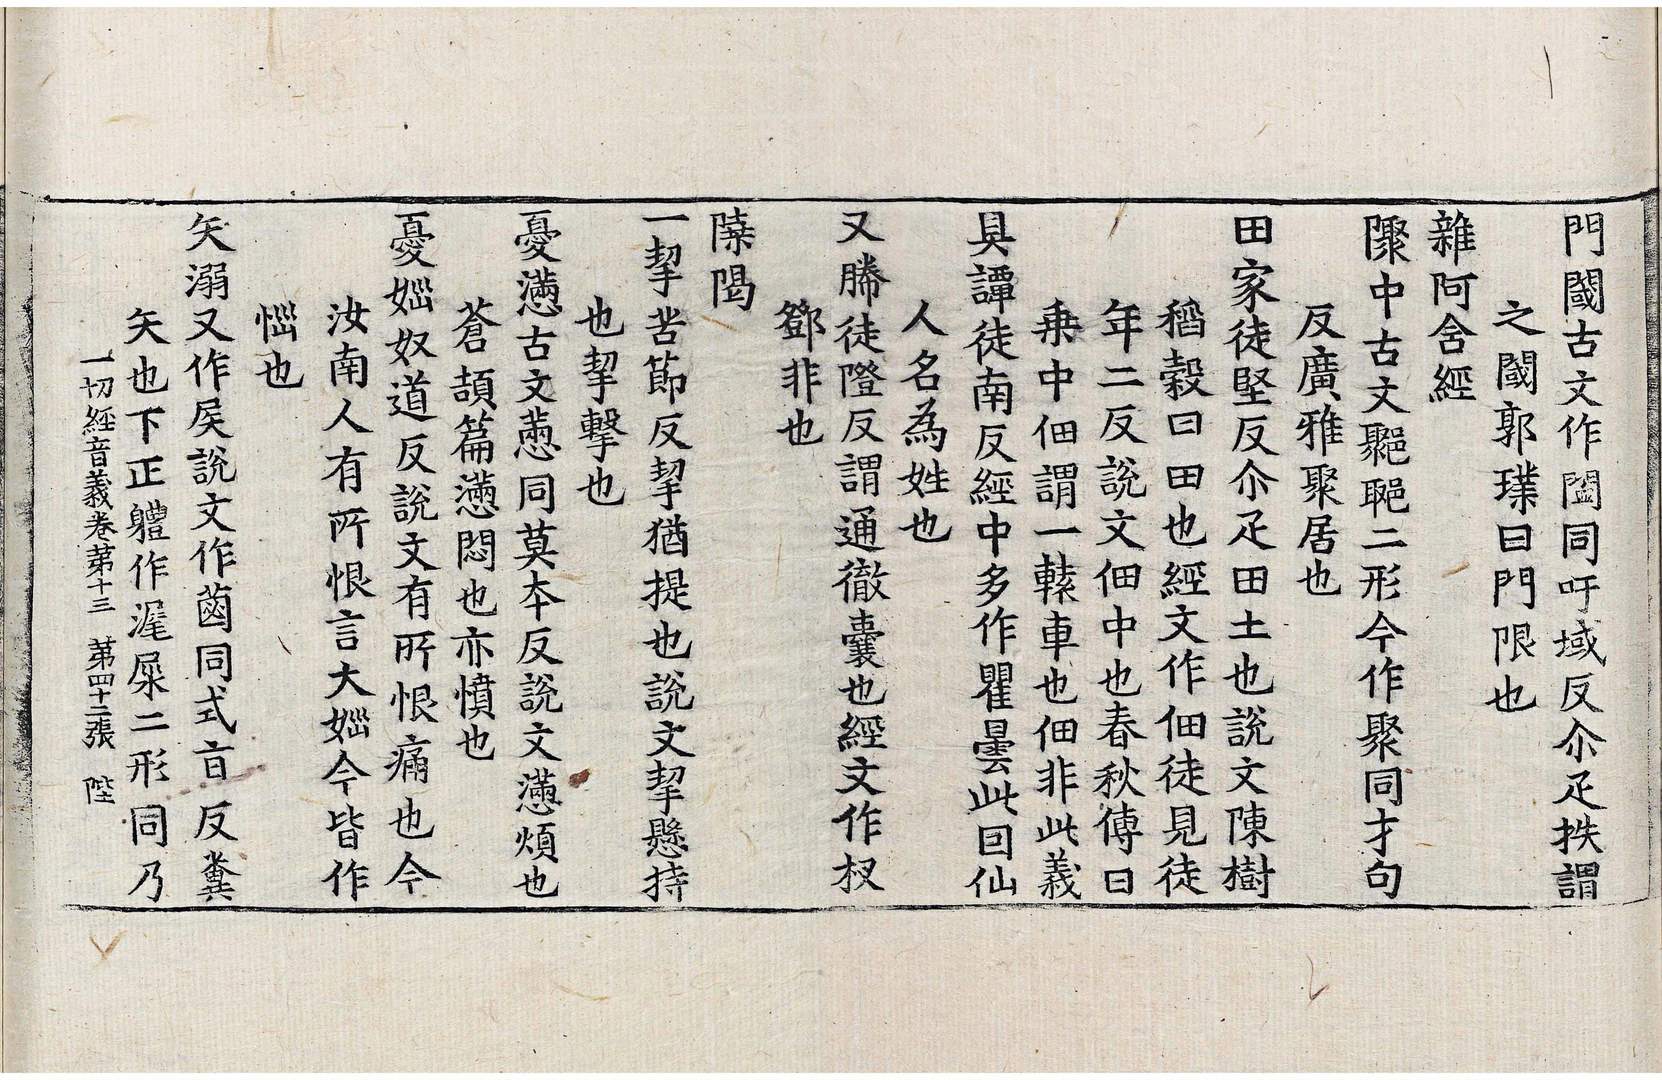 門閾古文作閾同吁域反尒疋抶謂
之閾郭璞曰門限也
雜阿含經
隳中古文聚二形今作聚同才句
反廣雅聚居也
田家徒堅反尒疋田土也說文陳樹
稻穀曰田也經文作佃徒見徒
年二反說文佃中也春秋傳曰
乗中佃謂一轅車也佃非此義
具譚徒南反經中多作瞿曇此囙仙
人名為姓也
又勝徒隥反謂通徹囊也經文作杈
鄧非也
陸
一挈苦節反挈猶提也說文挈懸持
也挈擊也
憂懣古文同莫夲反說文懣煩也
蒼頡篇懣悶也亦憤也
憂㛴奴道反說文有所恨痛也今
汝南人有所恨言大㛴今皆作
惱也
矢溺又作屎說文作𦳊同式旨反糞
矢也下正軆作㞙屎二形同乃
一切經音義卷第十三 第四十二張 陛